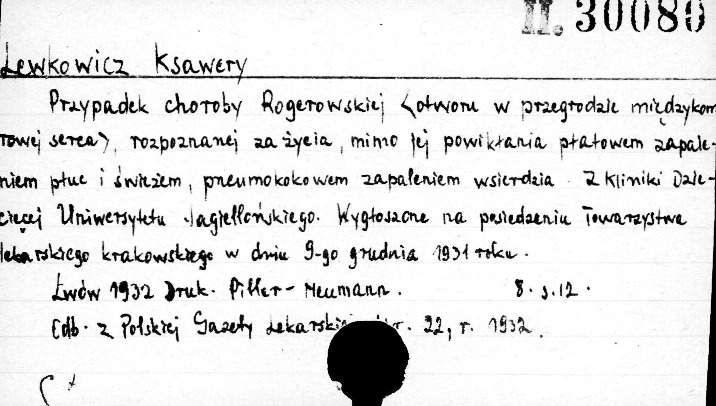 II. 30080
Lewkowicz Ksawery
Przypadek choroby Rogerowskiej <otworu w przegrodzie międzykom
rowej serca>, rozpoznanej za życia, mimo jej powikłania płatowem zapale-
niem płuc i świeżem, pneumokokowem zapaleniem wsierdzia. Z Kliniki Dzie-
cięcej Uniwersytetu Jagiellońskiego. Wygłoszone na posiedzeniu Towarzystwa
lekarskiego krakowskiego w dniu 9-go grudnia 1931 roku.
Lwów 1932 Druk. Piller-Neumann. 8. s. 12.
Odb. z Polskiej Gazety Lekarskiej Nr. 22, r. 1932.